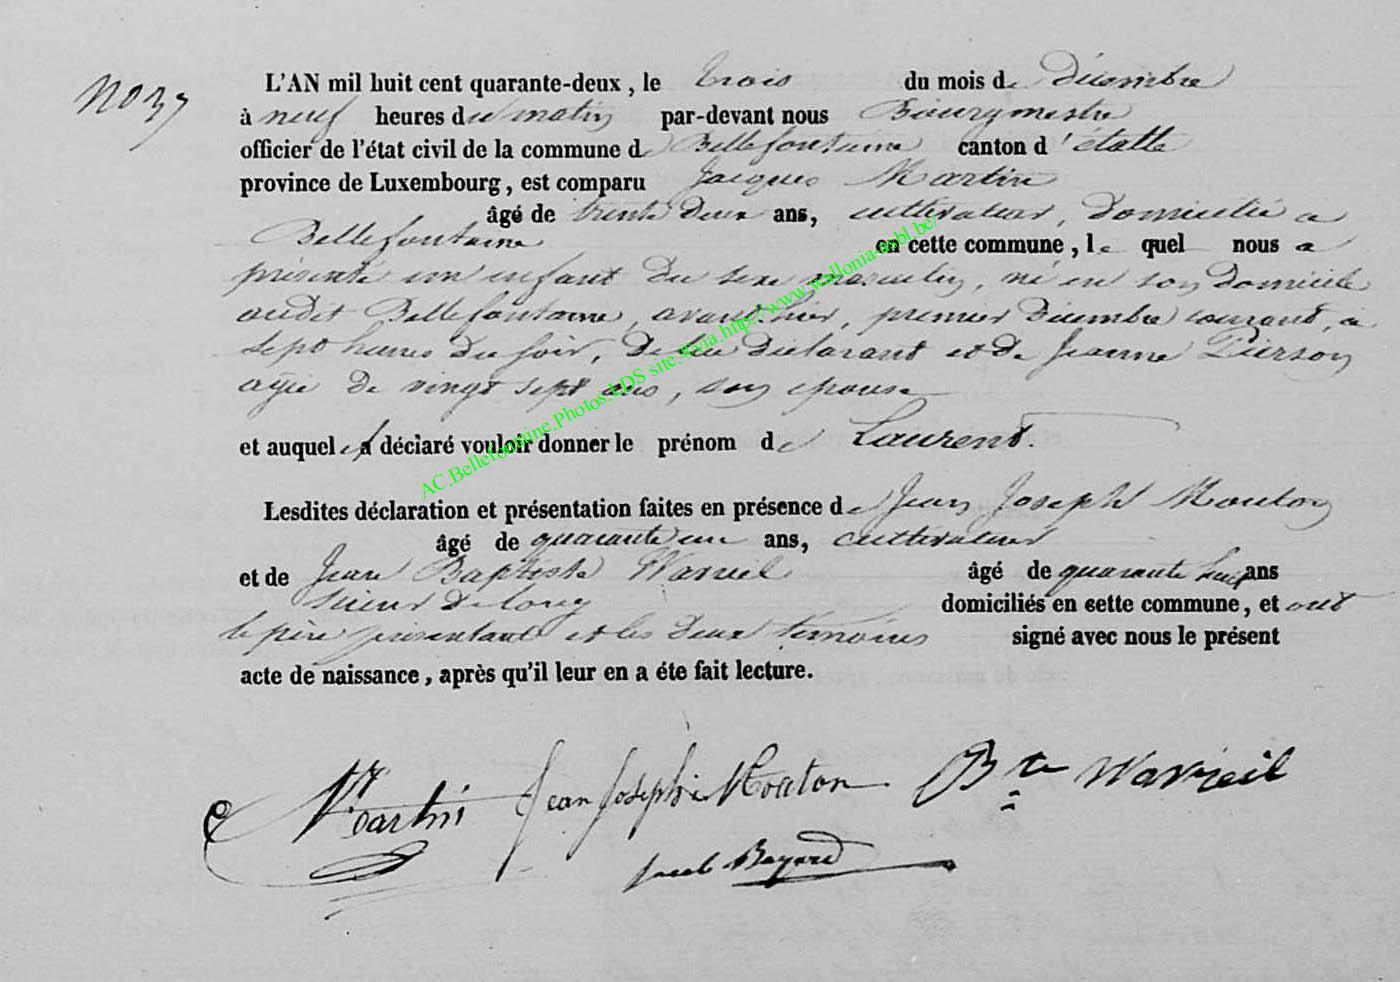 No 37
L'AN mil huit cent quarante-deux, le trois du mois de décembre
à neuf heures du matin par-devant nous Bourgmestre
officier de l'état civil de la commune de Bellefontaine canton d'étalle
province de Luxembourg, est comparu Jacques Martin
âgé de trente deux ans, cultivateur, domicilié a
Bellefontaine en cette commune, le quel nous a
présenté un enfant du sexe masculin, né en son domicile
audit Bellefontaine, avant hier, premier Décembre courant, a
sept heures du soir, de lui déclarant et de Jeanne Pierson
agée de vingt sept ans, son épouse
et auquel il a déclaré vouloir donner le prénom de Laurent.
Lesdites déclaration et présentation faites en présence de Jean Joseph Mouton
âgé de quarante un ans, cultivateur
et de Jean Baptiste Warveil âgé de quarante huit ans
scieur de long domiciliés en cette commune, et ont
le père présentant et les deux temoins signé avec nous le présent
acte de naissance, après qu'il leur en a éte fait lecture.
Martin Jean Joseph Mouton Bte Warveil
Jacob Bayard
AC.Bellefontaine.Photos.LDS site.©via.http://www.wallonia-asbl.be/